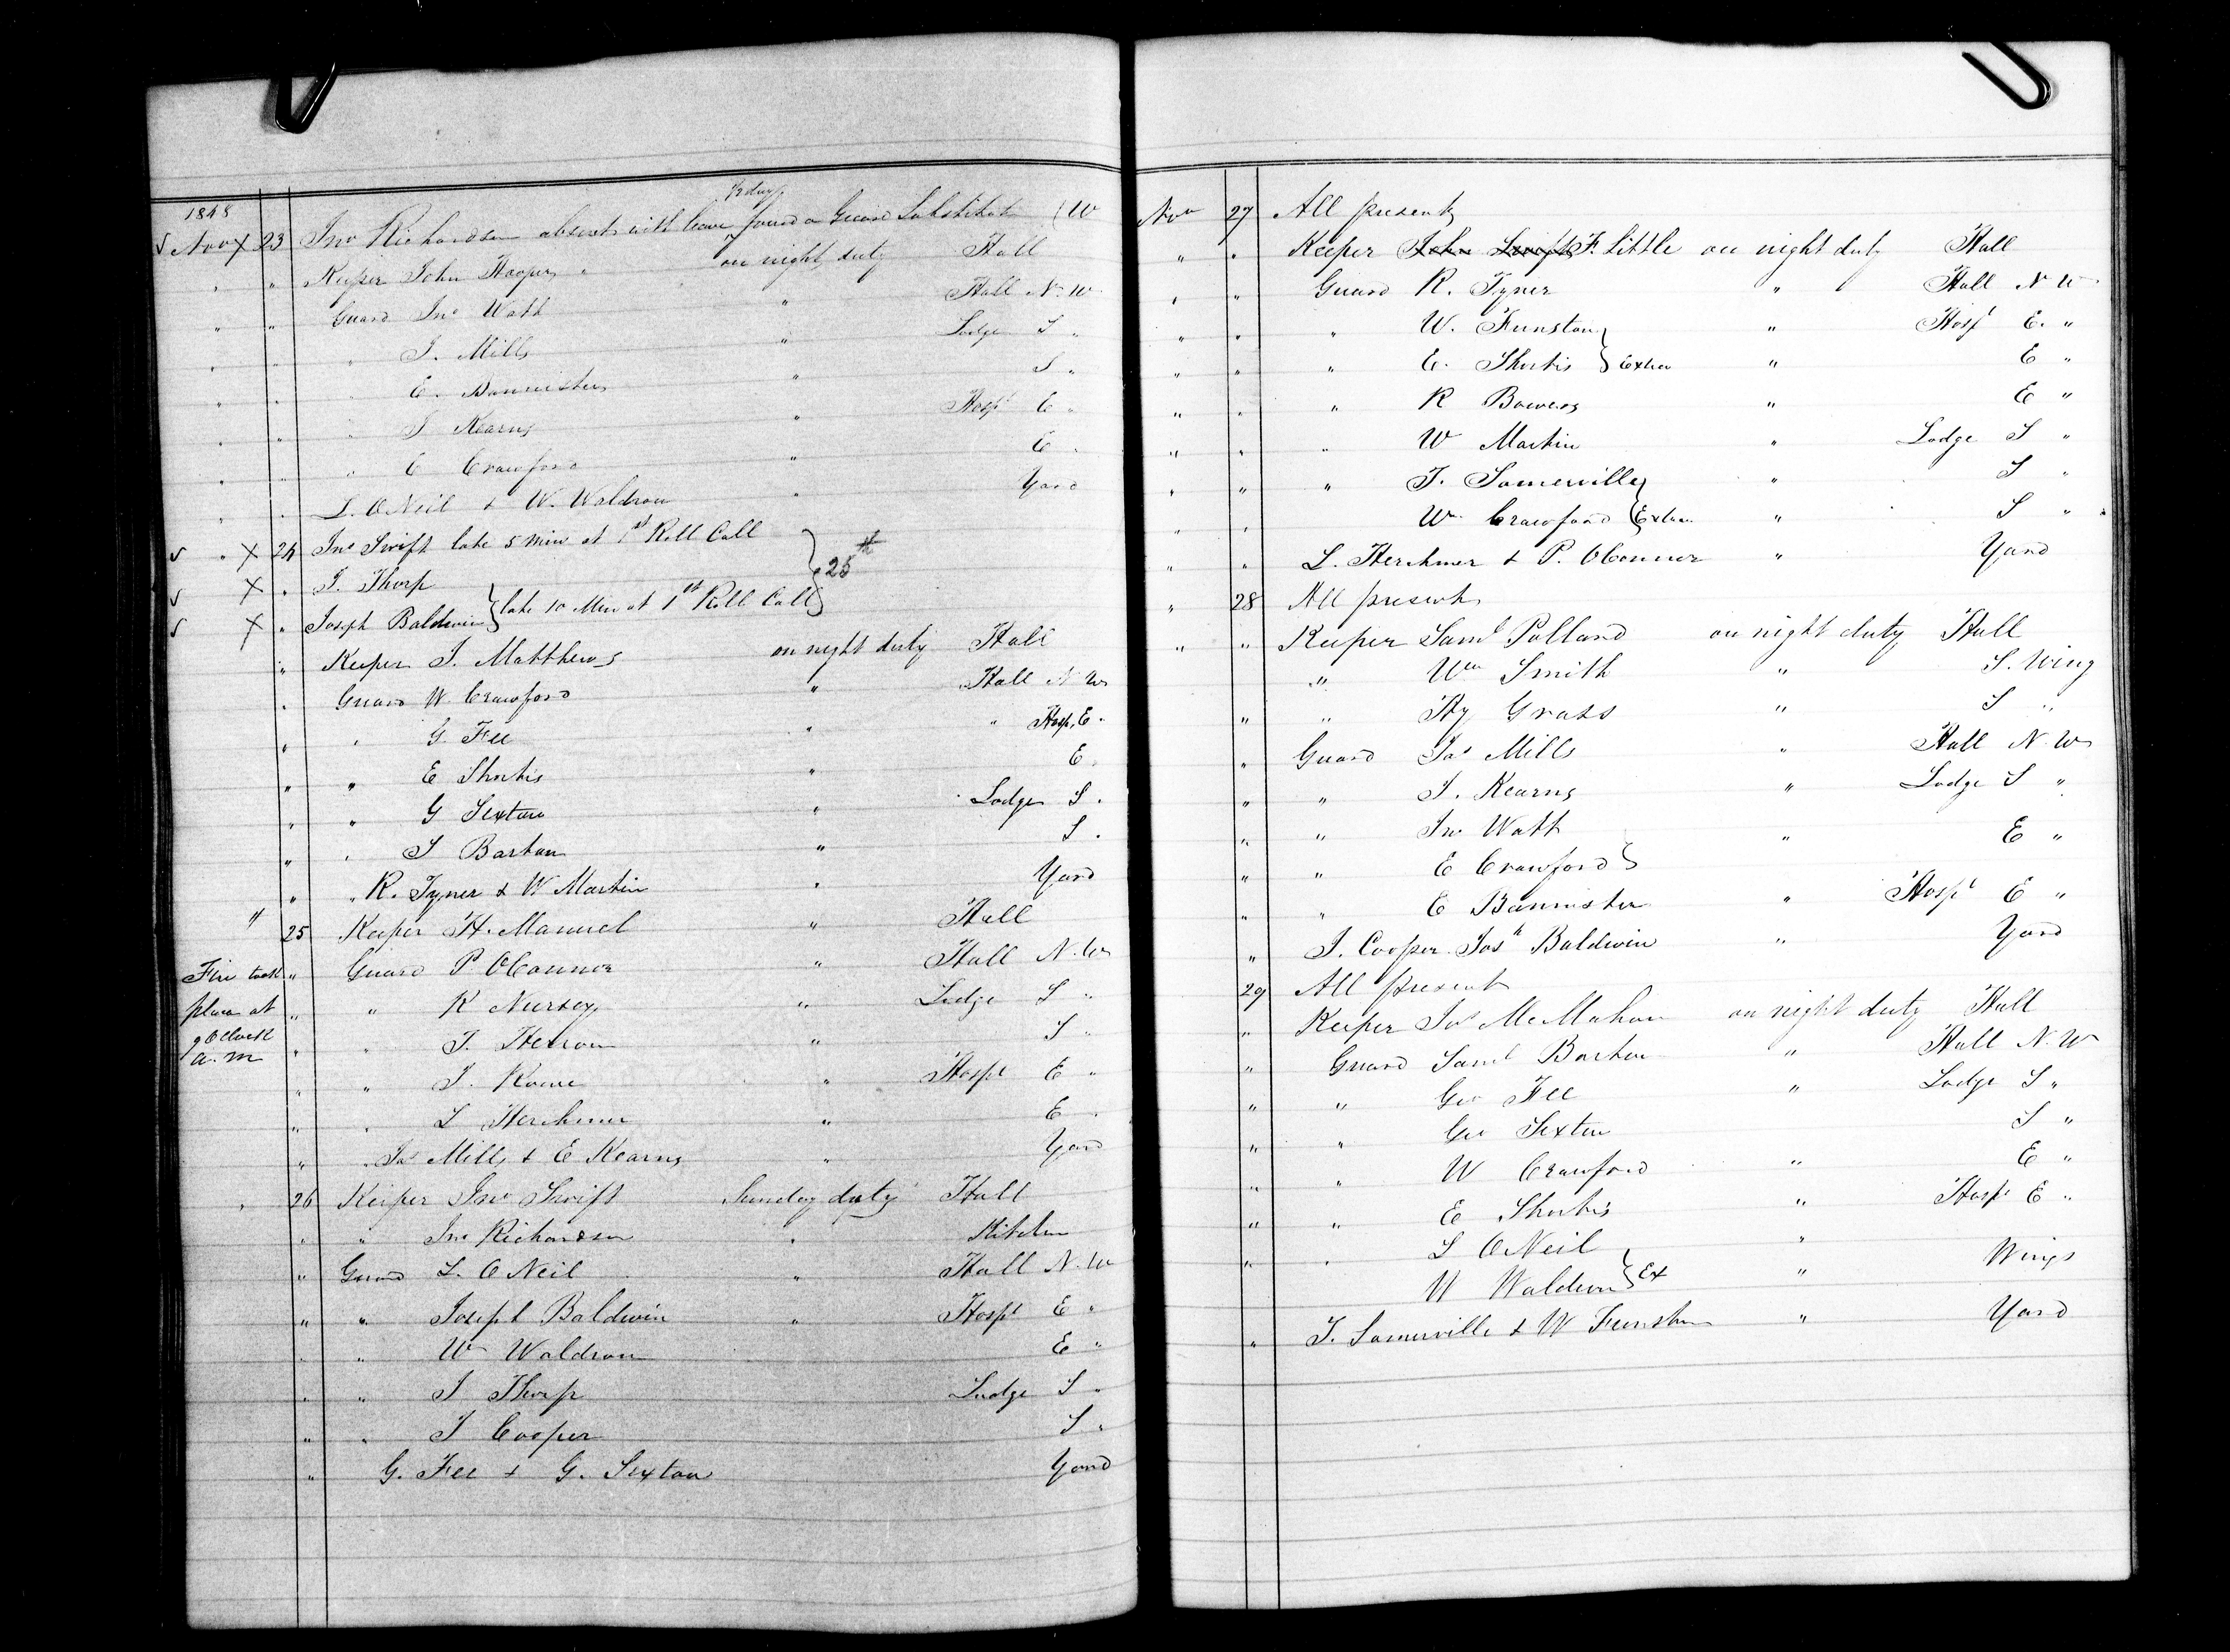 1848
½ day
√ Nov X 23 Jno Richardson absent with leave found a Guard Substitute (W
" " Keeper John Hooper " on night duty Hall
" " Guard Jno Watt " Hall N. W
" " " J. Mills " Lodge S "
" " " E. Bannister " S "
" " " J Kearns " Hospl E "
" " " E Crawford " E "
" " L. ONeil & W. Waldron " Yard
√ " X 24 Jno Swift late 5 min at 1st Roll Call
√ X " J. Thorp } 25th
√ X " Joseph Baldwin } late 10 Min at 1st Roll Call
" Keeper J. Matthews on night duty Hall
" Guard W. Crawford " Hall N. W
" " G. Fee " " Hosp. E "
" " E Shortis " E "
" " G Sexton " Lodge S "
" " S Barton " S "
" " R. Tyner & W Martin " Yard
" 25 Keeper H. Manuel " Hall
Fire took " Guard P OConnor " Hall N. W
place at " " R Nursey " Lodge S "
9 OClock " " T. " S "
a. m
" " J. " Hospl E "
" " L Herchmer " E "
" " Jas Mills & E Kearns " Yard
" 26 Keeper Jno Swift Sunday duty Hall
" " Jno Richardson " Kitchen
" Guard L. ONeil " Hall N. W
" " Joseph Baldwin " Hospl E "
" " Wm Waldron E "
" " J Thorp Lodge S "
" " J Cooper S "
" G. Fee & G. Sexton Yard
Nov 27 All present
" " Keeper John Swift F. Little on night duty Hall
" " Guard R. Tyner " Hall N W
" " " W. Funston " Hospl E. "
" " " E. Shortis } Extra " E "
" " " R Bowers " E "
" " " W Martin " Lodge S "
" " " T. Somerville " S "
" " Wm Crawford } Extra " S "
" " L. Herchmer & P. OConnor " Yard
" 28 All present
" " Keeper Saml Pollard on night duty Hall
" Wm Smith " S. Wing
" " Hy Grass " S "
" Guard Jas Mills " Hall N. W
" " J. Kearns " Lodge S "
" " Jno Watt " E "
" " E Crawford }
" " E Bannister " Hospl E "
" J. Cooper Josh Baldwin " Yard
29 All present
" Keeper Jas McMahon on night duty Hall
" Guard Saml Barton " Hall N. W
" " Geo Fee " Lodge S "
" " Geo Sexton S "
" " W Crawford " E "
" " E Shortis " Hospl E "
" " L ONeil "
W Waldron } Ex " Wings
" T. Somerville & W Funston " Yard